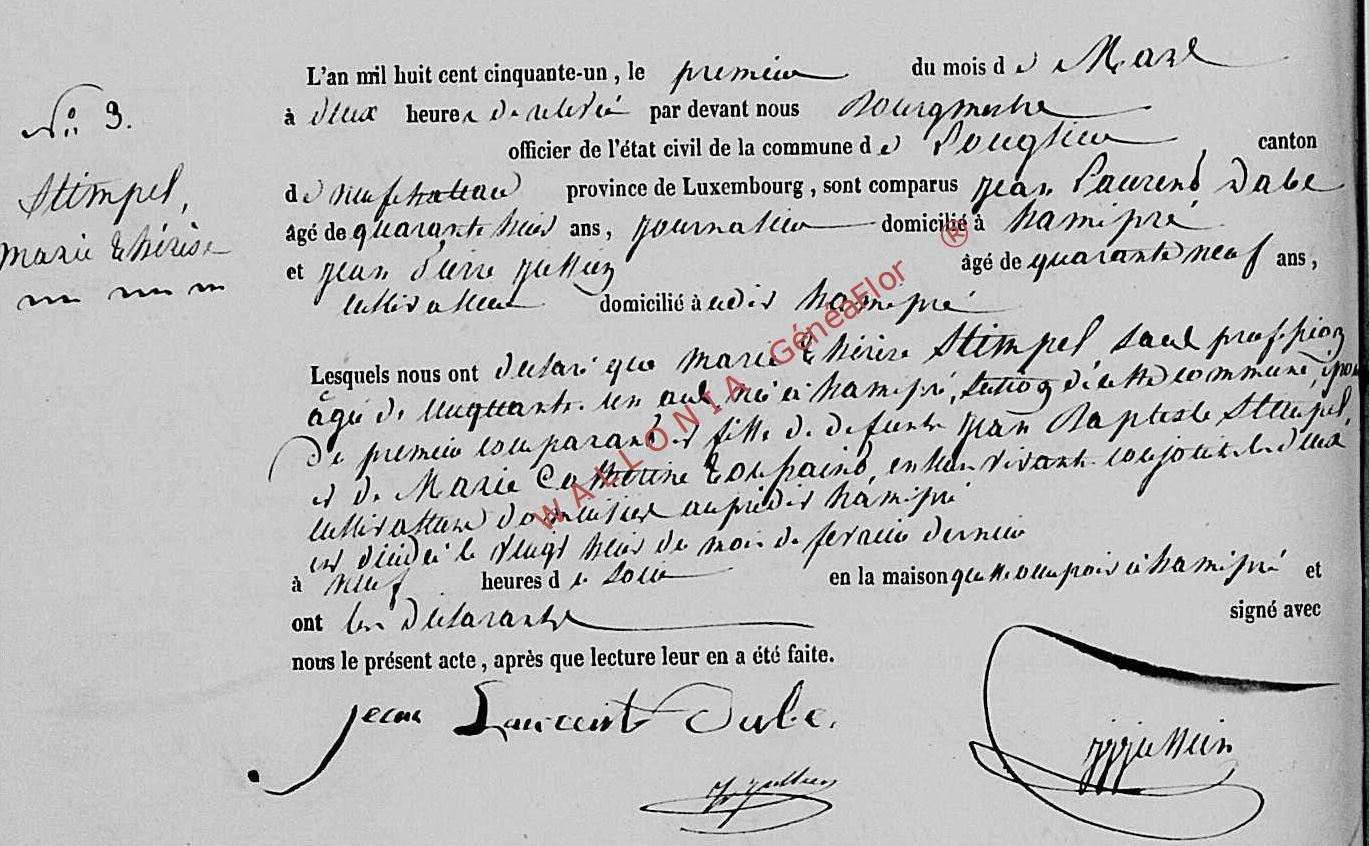 N° 3.
Stimpel,
marie thérèse
L'an mil huit cent cinquante-un, le premier du mois de Mars
à deux heures de relevée par devant nous Bourgmestre
officier de l'état civil de la commune de Longlier, canton
de neufchateau province de Luxembourg, sont comparus jean Laurend Dabe
âgé de quarante huit ans, journalier domicilié à hamipré
et jean Pierre jullien âgé de quarante neuf ans,
cultivateur domicilié à udit hamipré
Lesquels nous ont declaré que marie thérèse Stimpel, sans profession
âgé de cinquante un ans, né à hamipré, section de cette commune,
de premier comparand et fille de defunts jean Baptiste Stimpel,
et de Marie Catherine toussaint, en leur vivant conjoints
cultivateurs domiciliés audit hamipré
est décidé le vingt huit de mois de fevrier dernier
à neuf heures de soir en la maison quelle occupoit à hamipré et
ont les declarants signé avec
nous le présent acte, après que lecture leur en a été faite.
jean Laurent Dabe.
jpjullien
jullien
WALLONIA GénéaFlor ®